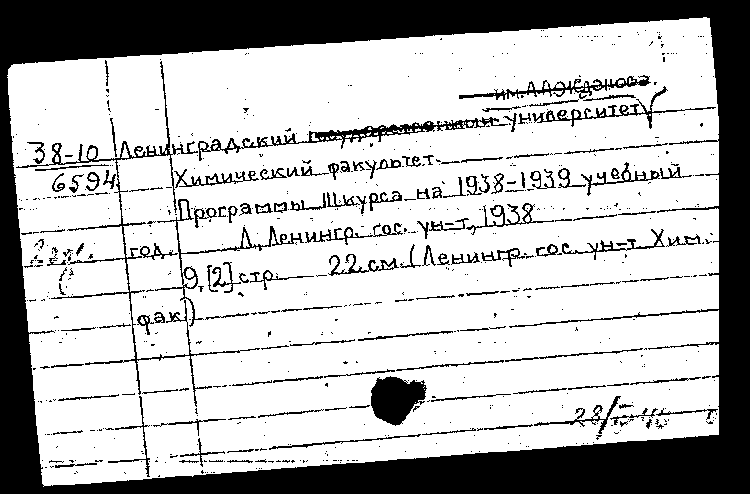 им. А.А. Жданова.
38-10 Ленинградский государственный университет
6594 Химический факультет.
Программы III курса на 1938-1939 учебный
2 экз. год. Л., Ленингр. гос. ун-т, 1938
9, [2] стр. 22 см. (Ленингр. гос. ун-т Хим.
фак)
28/IV